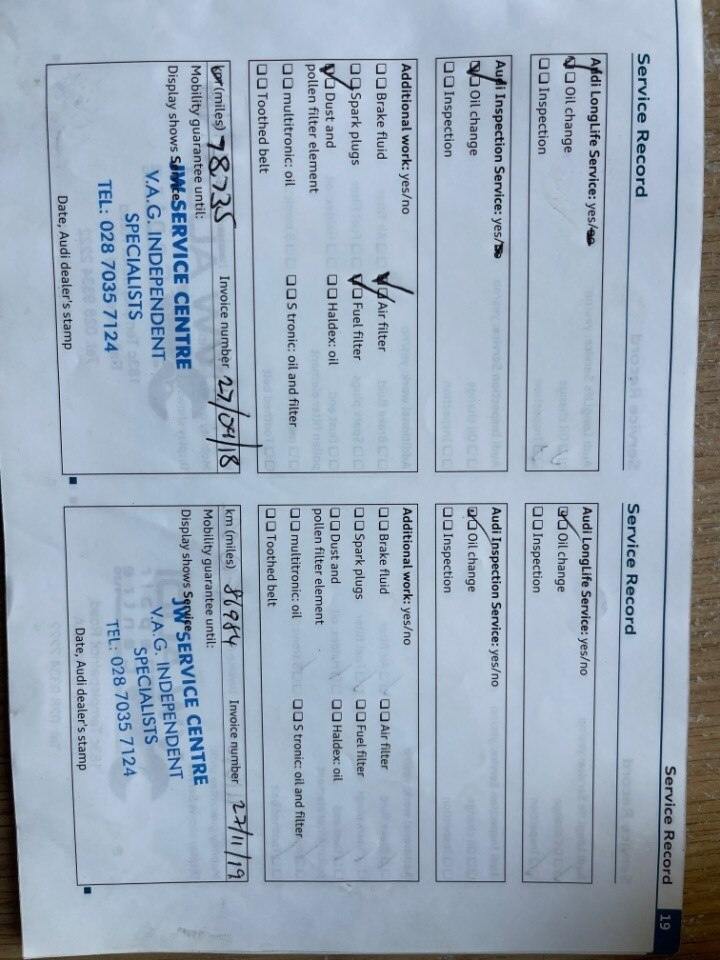 Service Record 19
Service Record
Audi LongLife Service: yes/no
Oil change
Inspection
Audi Inspection Service: yes/no
Oil change
Inspection
Additional work: yes/no
Brake fluid Air filter
Spark plugs Fuel filter
Dust and Haldex: oil
pollen filter element
multitronic: oil S tronic: oil and filter
Toothed belt
km (miles) 78735 Invoice number 27/04/18
Mobility guarantee until:
Display shows Service
JW SERVICE CENTRE
V.A.G. INDEPENDENT
SPECIALISTS
TEL: 028 7035 7124
Date, Audi dealer's stamp
Service Record
Audi LongLife Service: yes/no
Oil change
Inspection
Audi Inspection Service: yes/no
Oil change
Inspection
Additional work: yes/no
Brake fluid Air filter
Spark plugs Fuel filter
Dust and Haldex: oil
pollen filter element
multitronic: oil S tronic: oil and filter
Toothed belt
km (miles) 86984 Invoice number 27/11/19
Mobility guarantee until:
Display shows Service
JW SERVICE CENTRE
V.A.G. INDEPENDENT
SPECIALISTS
TEL: 028 7035 7124
Date, Audi dealer's stamp